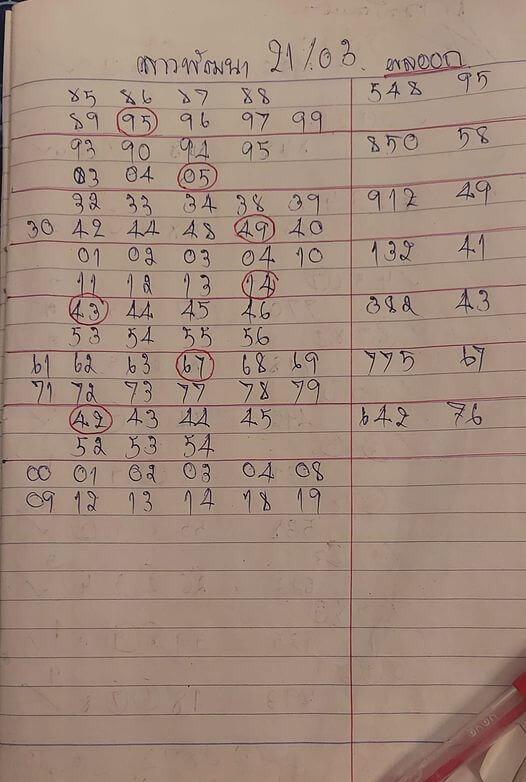 ลาวพัฒนา 21/03 ผลออก
85 86 87 88 548 95
89 95 96 97 99
93 90 94 95 850 58
03 04 05
32 33 34 38 39 912 49
30 42 44 48 49 40
01 02 03 04 10 132 41
11 12 13 14
43 44 45 46 382 43
53 54 55 56
61 62 63 67 68 69 775 67
71 72 73 77 78 79
42 43 44 45 642 76
52 53 54
00 01 02 03 04 08
09 12 13 14 18 19